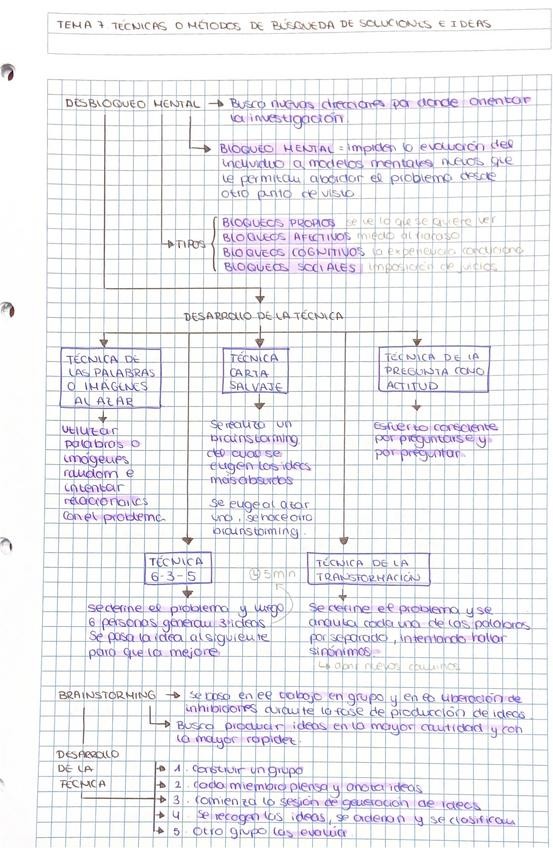 TEMA 7 TÉCNICAS O MÉTODOS DE BÚSQUEDA DE SOLUCIONES E IDEAS
DESBLOQUEO MENTAL → Busca nuevas direcciones por donde orientar
la investigación.
BLOQUEO MENTAL = impiden la evaluación del
individuo a modelos mentales nuevos que
le permitan abordar el problema desde
otro punto de vista
TIPOS
BLOQUEOS PROPIOS se ve lo que se quiere ver
BLOQUEOS AFECTIVOS miedo al fracaso
BLOQUEOS COGNITIVOS la experiencia condiciona
BLOQUEOS SOCIALES imposición de juicios
DESARROLLO DE LA TÉCNICA
TÉCNICA DE
LAS PALABRAS
O IMÁGENES
AL AZAR
utilizar
palabras o
imágenes
random e
intentar
relacionarlas
con el problema
TÉCNICA
CARTA
SALVAJE
Se realiza un
brainstorming
del cual se
eligen las ideas
más absurdas
Se elige al azar
una, se hace otro
brainstorming.
TÉCNICA DE LA
PREGUNTA COMO
ACTITUD
Esfuerzo consciente
por preguntarse y
por preguntar.
TÉCNICA
6-3-5
5 min
Se define el problema y luego
6 personas generan 3 ideas
Se pasa la idea al siguiente
para que la mejore
TÉCNICA DE LA
TRANSFORMACIÓN
Se define el problema y se
analiza cada una de las palabras
por separado, intentando hallar
sinónimos.
↳ abrir nuevos caminos
BRAINSTORMING → Se basa en el trabajo en grupo y en la liberación de
inhibiciones durante la fase de producción de ideas.
Busca producir ideas en la mayor cantidad y con
la mayor rapidez.
DESARROLLO
DE LA
TÉCNICA
1. Construir un grupo
2. Cada miembro piensa y anota ideas
3. Comienza la sesión de generación de ideas
4. Se recogen las ideas, se ordenan y se clasifican
5. Otro grupo las evalúa.